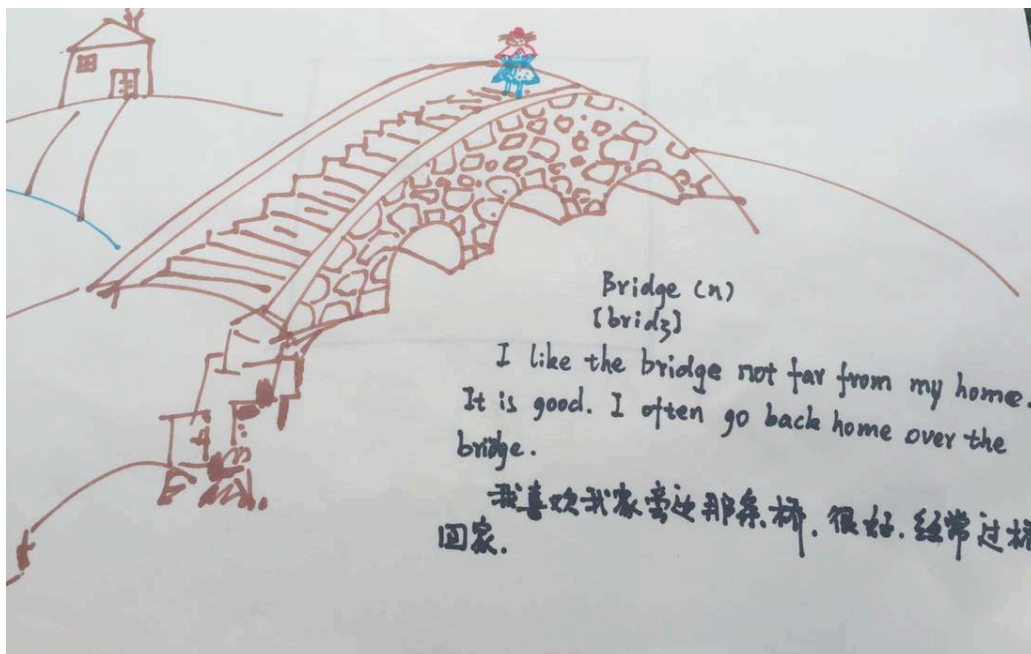 Bridge (n)
[bridʒ]
I like the bridge not far from my home.
It is good. I often go back home over the
bridge.
我喜欢我家旁边那条桥. 很好. 经常过桥
回家.